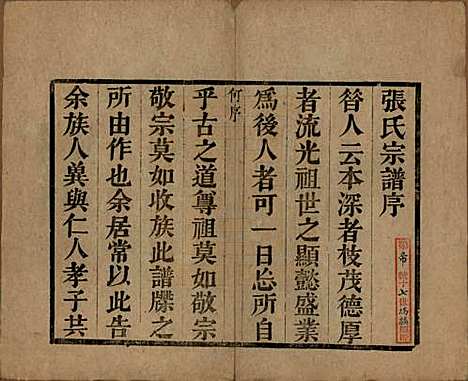 張氏宗譜序
昝人云本深者枝茂德厚
者流光祖世之顯懿盛業
為後人者可一日忘所自
何序
乎古之道尊祖莫如敬宗
敬宗莫如收族此譜牒之
所由作也余居常以此告
余族人冀與仁人孝子共